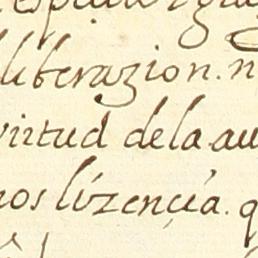 liberazion. n
virtud dela au
nos lizençia. q